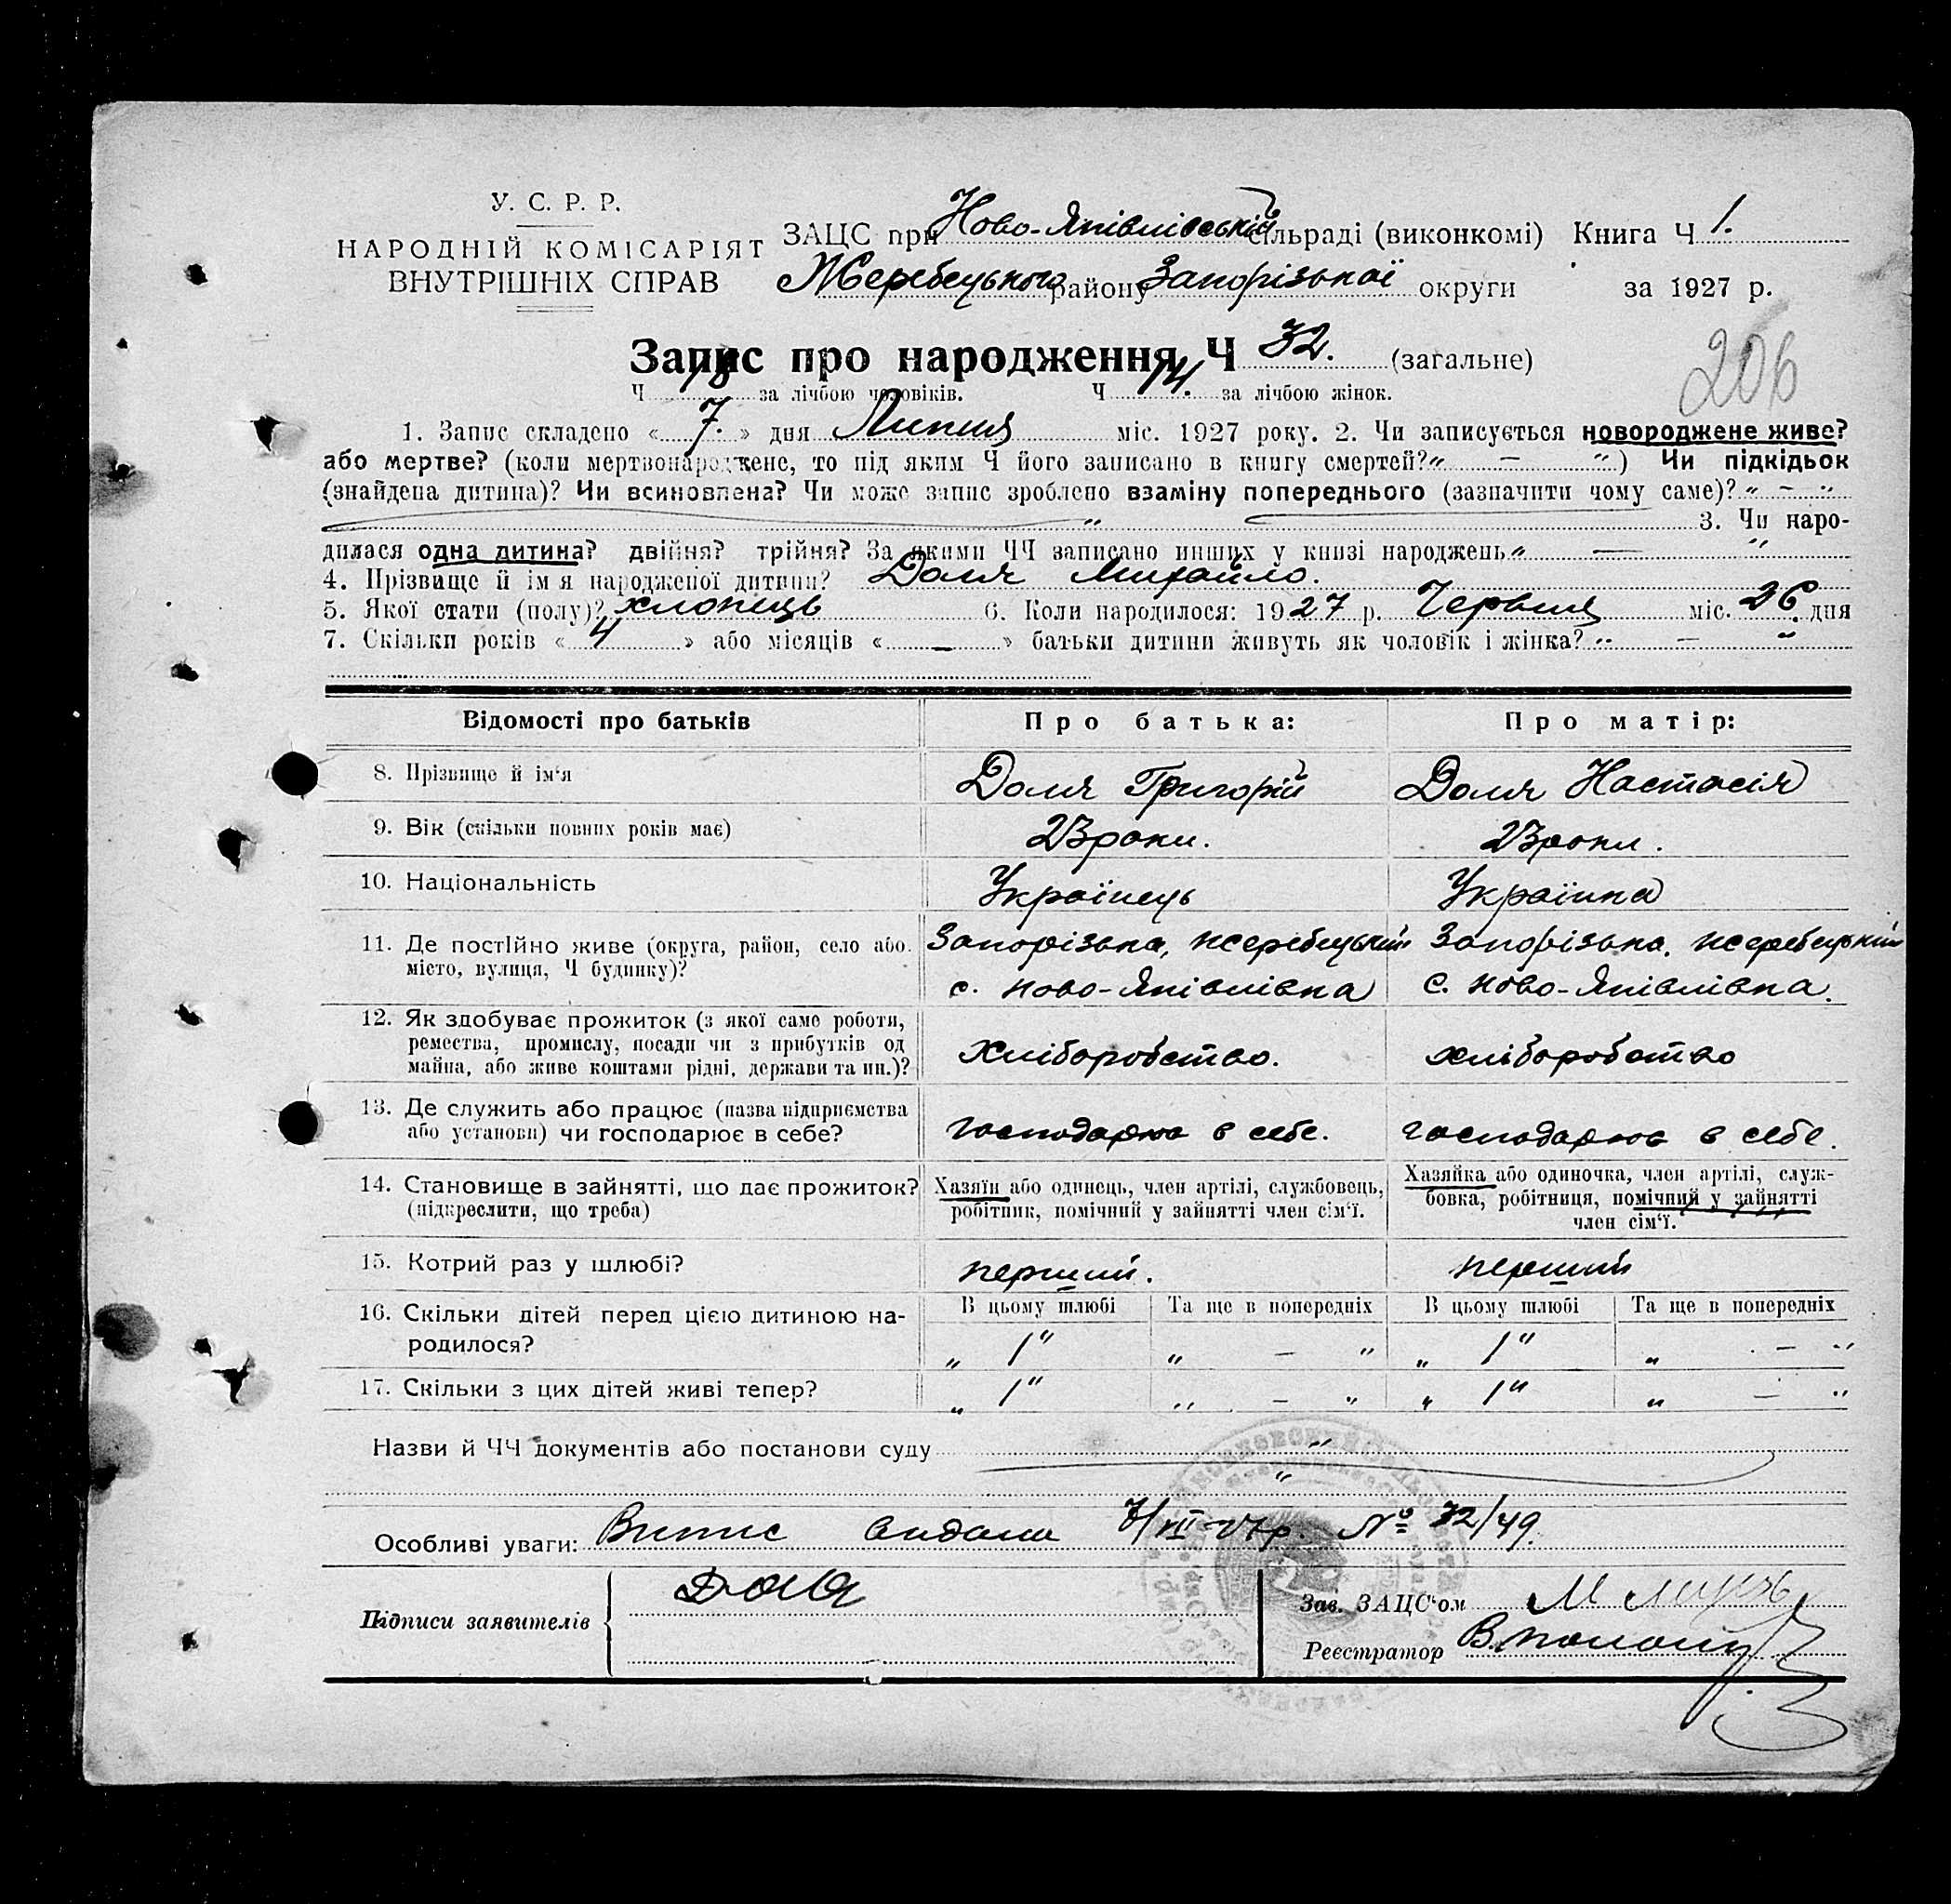 У. С. Р. Р.
НАРОДНІЙ КОМІСАРІЯТ
ВНУТРІШНІХ СПРАВ
ЗАЦС при Ново-Яківлівській сільраді (виконкомі) Книга Ч 1.
Жеребецького району Запорізької округи за 1927 р.
Запис про народження Ч 32. (загальне)
206
Ч 18 за лічбою чоловіків. Ч 14. за лічбою жінок.
1. Запис складено « 7. » дня Липня міс. 1927 року. 2. Чи записується новороджене живе?
або мертве? (коли мертвонароджене, то під яким Ч його записано в книгу смертей? „ — “ ) Чи підкідьок
(знайдена дитина)? Чи всиновлена? Чи може запис зроблено взаміну попереднього (зазначити чому саме)? „ — “
„ 3. Чи наро-
дилася одна дитина? двійня? трійня? За якими ЧЧ записано инших у книзі народжень „ — “
4. Прізвище й ім'я народженої дитини? Доля Михайло.
5. Якої стати (полу)? хлопець 6. Коли народилося: 1927 р. Червня міс. 26. дня
7. Скільки років « 4 » або місяців « — » батьки дитини живуть як чоловік і жінка? „ — “
Відомості про батьків Про батька: Про матір:
8. Прізвище й ім'я Доля Григорій Доля Настасія
9. Вік (скільки повних років має) 23 роки. 23 роки.
10. Національність Українець Українка
11. Де постійно живе (округа, район, село або Запорізька, Жеребецький Запорізька, Жеребецький
місто, вулиця, Ч будинку)? с. Ново-Яківлівка с. Ново-Яківлівка.
12. Як здобуває прожиток (з якої саме роботи,
ремества, промислу, посади чи з прибутків од хліборобство. хліборобство
майна, або живе коштами рідні, держави та ин.)?
13. Де служить або працює (назва підприємства
або установи) чи господарює в себе? господарює в себе. господарює в себе.
14. Становище в зайнятті, що дає прожиток? Хазяїн або одинець, член артілі, службовець, Хазяйка або одиночка, член артілі, служ-
(підкреслити, що треба) робітник, помічний у зайнятті член сім'ї. бовка, робітниця, помічний у зайнятті
член сім'ї.
15. Котрий раз у шлюбі? перший. перший
16. Скільки дітей перед цією дитиною на- В цьому шлюбі Та ще в попередніх В цьому шлюбі Та ще в попередніх
родилося? „ 1 “ „ — “ „ 1 “ „ — “
17. Скільки з цих дітей живі тепер? „ 1 “ „ — “ „ 1 “ „ — “
Назви й ЧЧ документів або постанови суду „
„
Особливі уваги: Випис видано 7/VII-27р. № 32/49.
Підписи заявителів Доля Зав. ЗАЦС'ом
Реєстратор